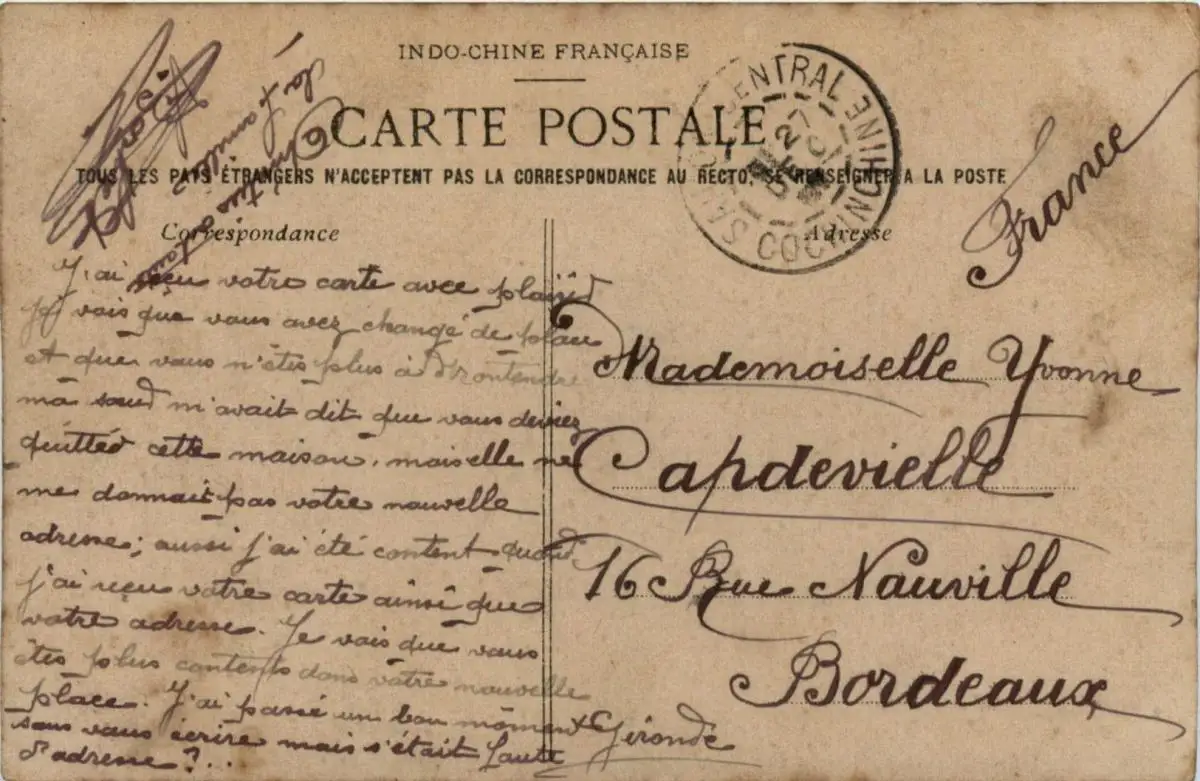 INDO-CHINE FRANÇAISE
CARTE POSTALE
TOUS LES PAYS ÉTRANGERS N'ACCEPTENT PAS LA CORRESPONDANCE AU RECTO, SE RENSEIGNER A LA POSTE
CENTRAL
COCHINCHINE
27
Correspondance
Adresse
J'ai reçu votre carte avec plaisir
je vois que vous avez changé de place
et que vous n'êtes plus à
ma sœur m'avait dit que vous deviez
quitter cette maison, mais elle ne
me donnait pas votre nouvelle
adresse; aussi j'ai été content quand
j'ai reçu votre carte ainsi que
votre adresse. Je vois que vous
êtes plus contents dans votre nouvelle
place. J'ai passé un bon moment
sans vous écrire mais s'était faute
d'adresse?..
la famille
France
Mademoiselle Yvonne
Capdevielle
16 Rue Nauville
Bordeaux
Gironde